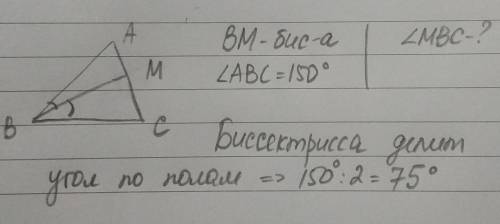 A
M
B
C
BM-бис-а
∠ABC=150°
∠MBC-?
Биссектрисса делит
угол по полам => 150°:2=75°